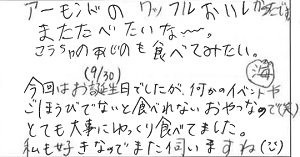 アーモンドの ワッフル おいしかったです
またたべたいな〜。
こうちゃのあじのも食べてみたい。
(9/30) 海
今回はお誕生日でしたが、何かのイベントや
ごほうびでないと食べれないおやつなので(笑)
とても大事にゆっくり食べてました。
私も好きなのでまた伺いますね(^^)